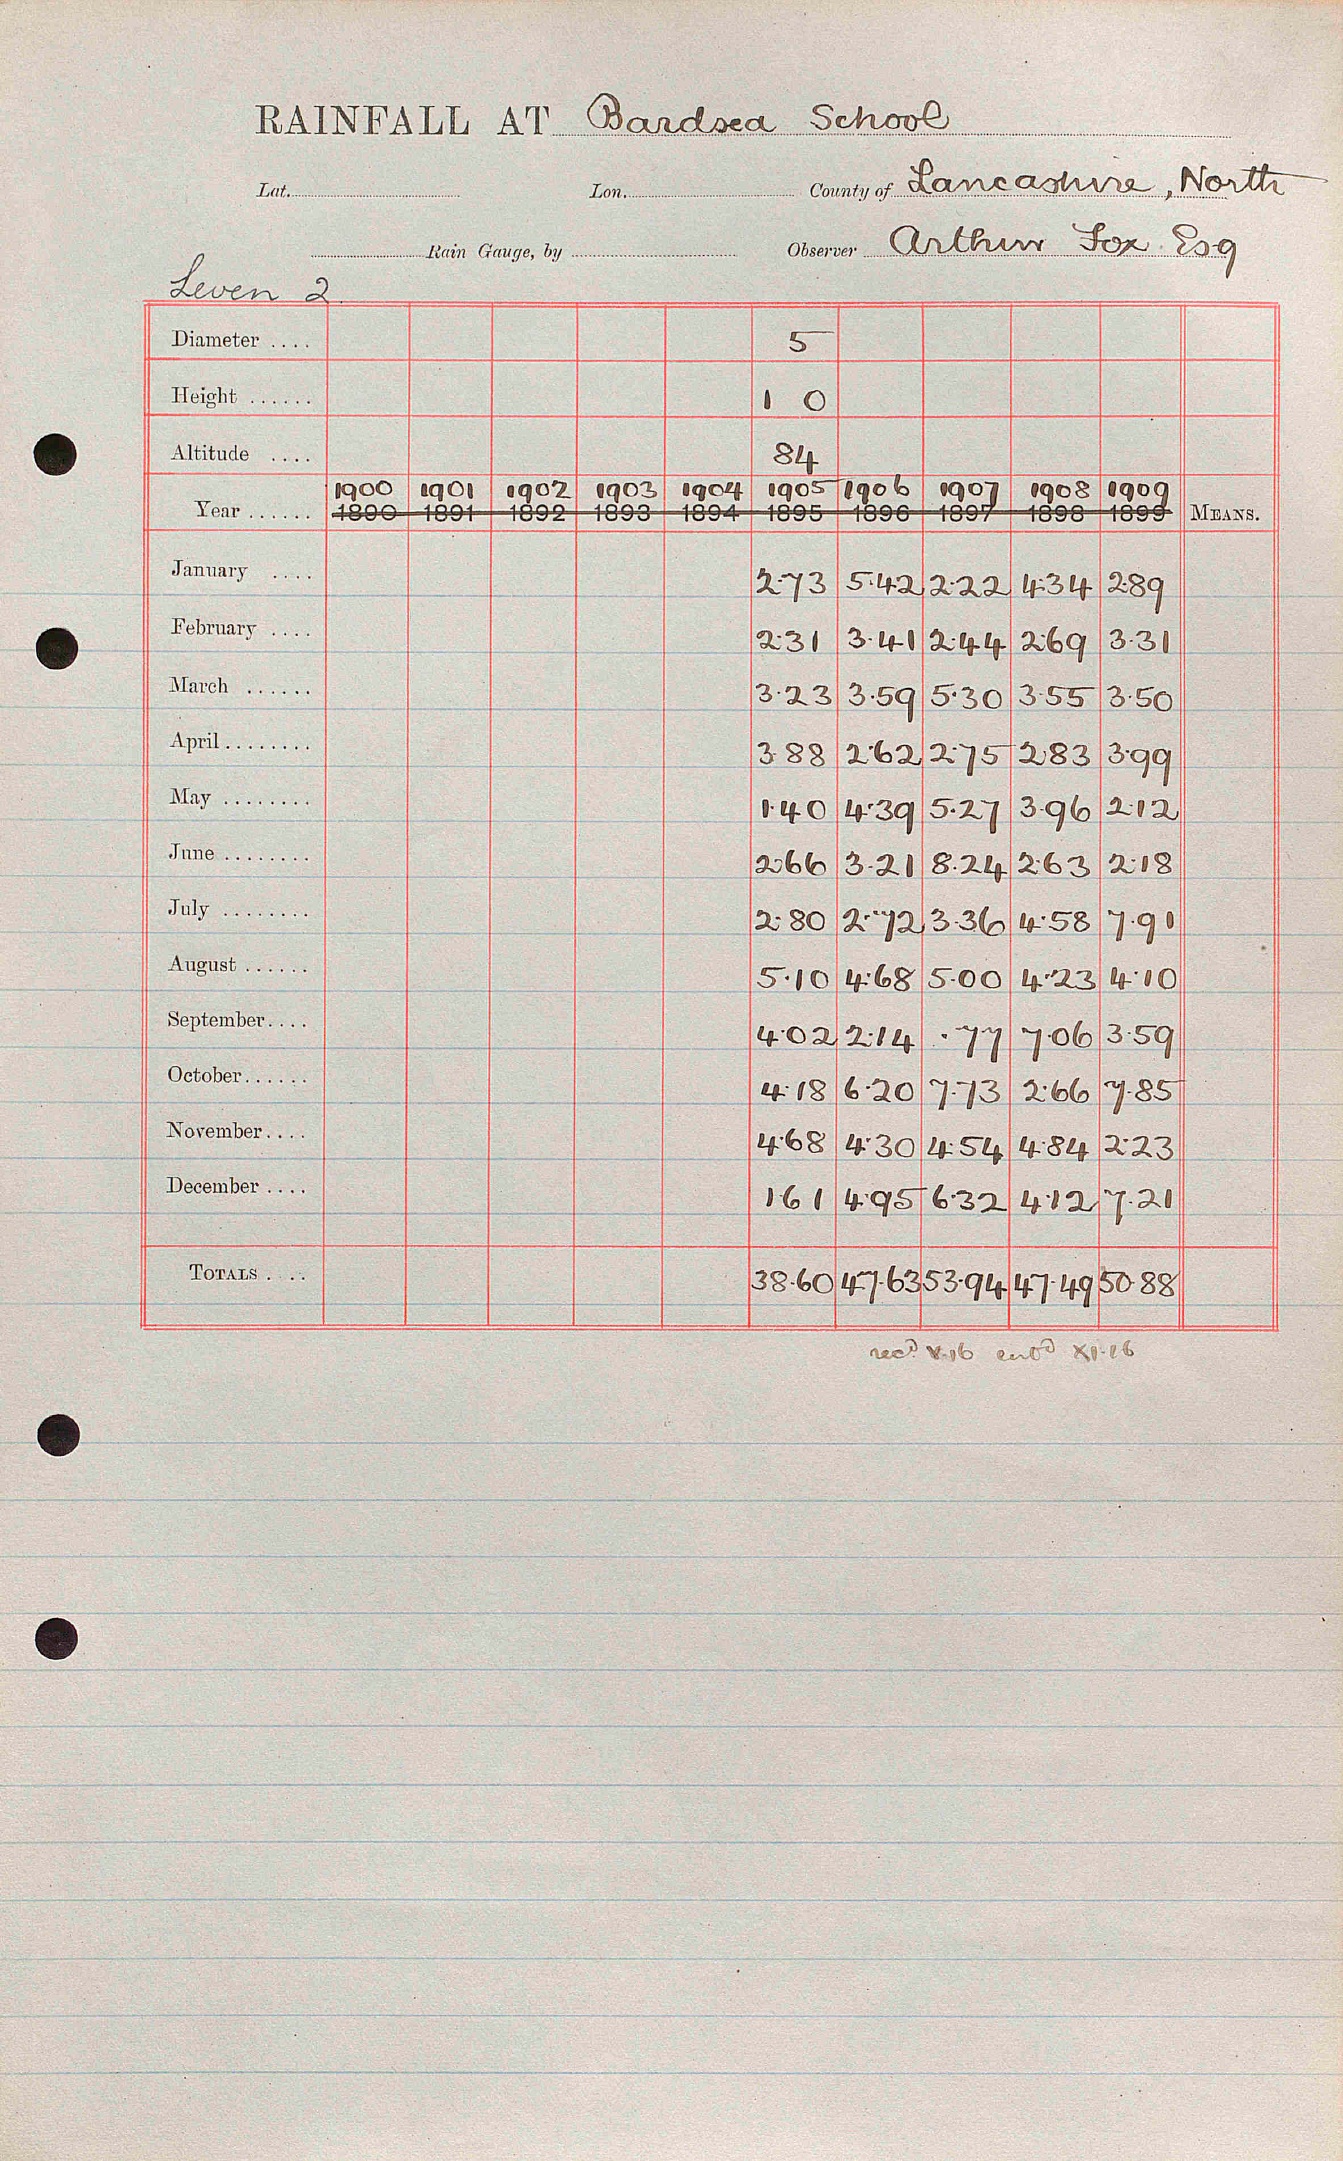 RAINFALL AT Bardsea School
Lat. Lon. County of Lancashire, North
Rain Gauge, by Observer Arthur Fox Esq
Leven 2
Diameter .... 5
Height ...... 1 0
Altitude .... 84
1900 1901 1902 1903 1904 1905 1906 1907 1908 1909
Year ...... 1890 1891 1892 1893 1894 1895 1896 1897 1898 1899 MEANS.
January .... 2.73 5.42 2.22 4.34 2.89
February .... 2.31 3.41 2.44 2.69 3.31
March ...... 3.23 3.59 5.30 3.55 3.50
April ........ 3.88 2.62 2.75 2.83 3.99
May ........ 1.40 4.39 5.27 3.96 2.12
June ........ 2.66 3.21 8.24 2.63 2.18
July ........ 2.80 2.72 3.36 4.58 7.91
August ...... 5.10 4.68 5.00 4.23 4.10
September.... 4.02 2.14 .77 7.06 3.59
October...... 4.18 6.20 7.73 2.66 7.85
November.... 4.68 4.30 4.54 4.84 2.23
December .... 1.61 4.95 6.32 4.12 7.21
TOTALS .... 38.60 47.63 53.94 47.49 50.88
recd X.16 entd XI.16